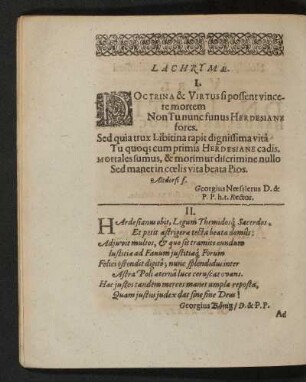 LACHRYMÆ.
I.
DOCTRINA & VIRTUS si possent vince-
re mortem
Non Tu nunc funus HERDESIANE
fores.
Sed quia trux Libitina rapit dignissima vitâ
Tu quoq; cum primis HERDESIANE cadis.
MORtales sumus, & morimur discrimine nullo
Sed manet in cœlis vita beata Pios.
Altdorfi f.
Georgius Nessleus D. &
P. P. h.t. Rector.
II.
HArdesianus obit, Legum Themidosq; Sacerdos.
Et petit astrigeræ tecta beata domûs:
Adjuvit multos, & quo sit tramite eundum
Iustitiæ ad Fanum justitiæq; Forum
Felici ostendit digitô; nunc splendidus inter
Astra Poli æternâ luce coruscat ovans.
Hac justos tandem merces manet ampla reposta,
Quam justus judex dat sine fine Deus!
Georgius König / D. & P. P.
Ad